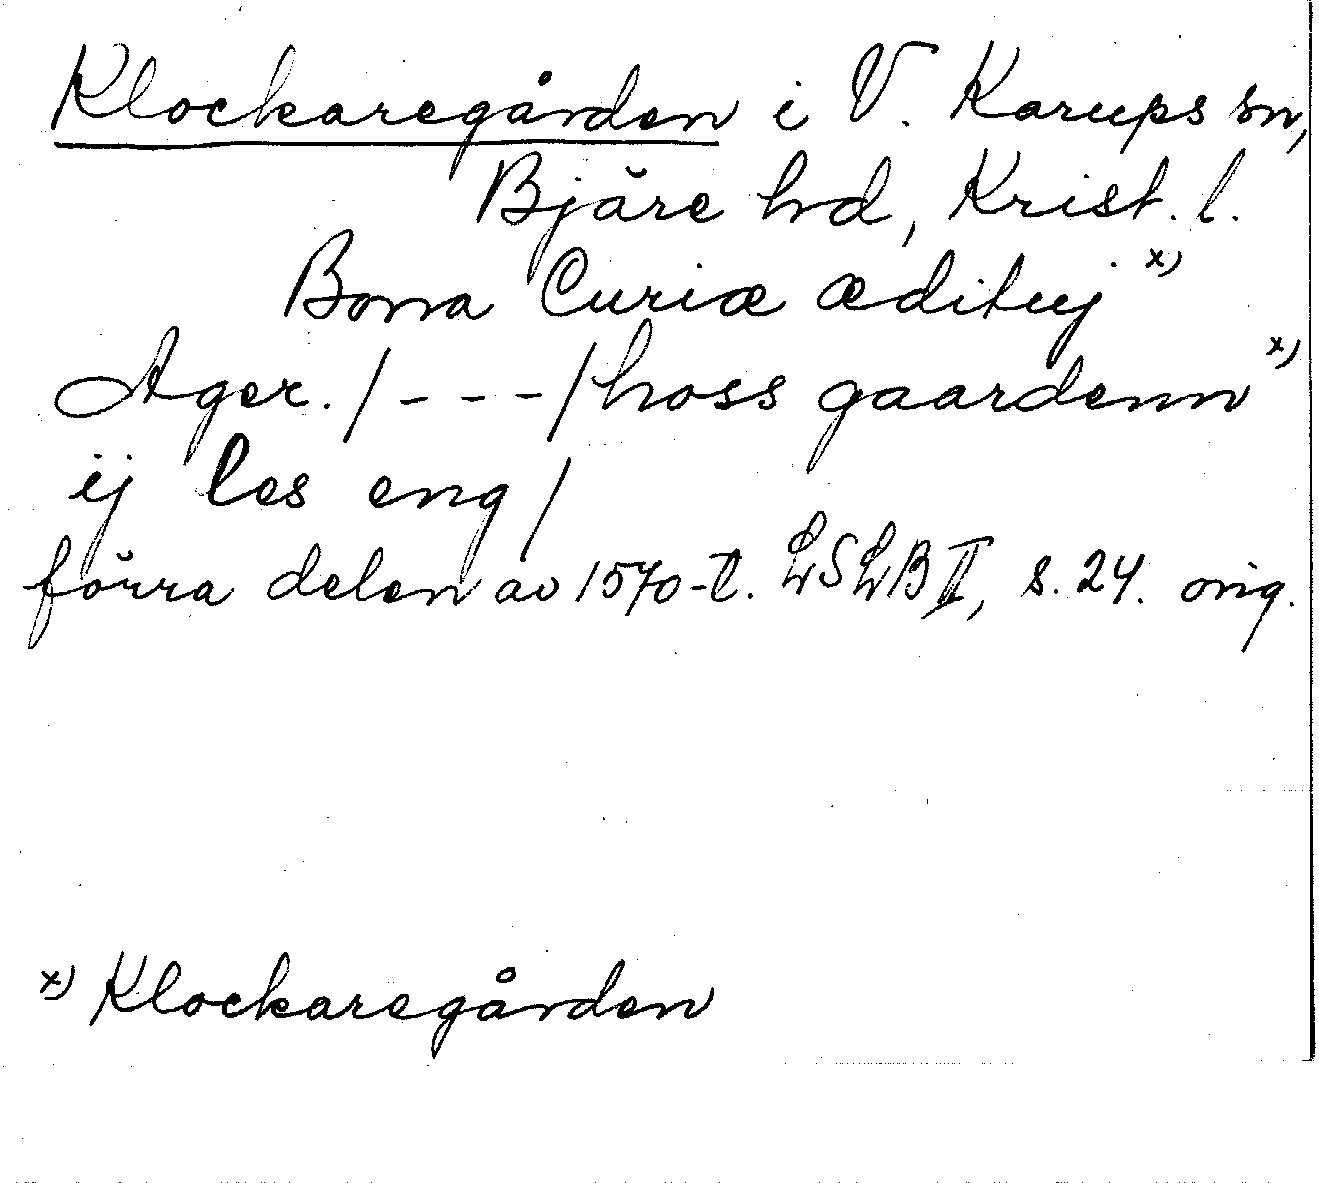 Klockaregården i V. Karups sn,
Bjäre hd, Krist. l.
Bona Curiæ ædituj x)
Ager. / - - - / hoss gaardenn x)
ij les eng /
förra delen av 1570-t. LSLB II, s. 24. orig.
x) Klockaregården